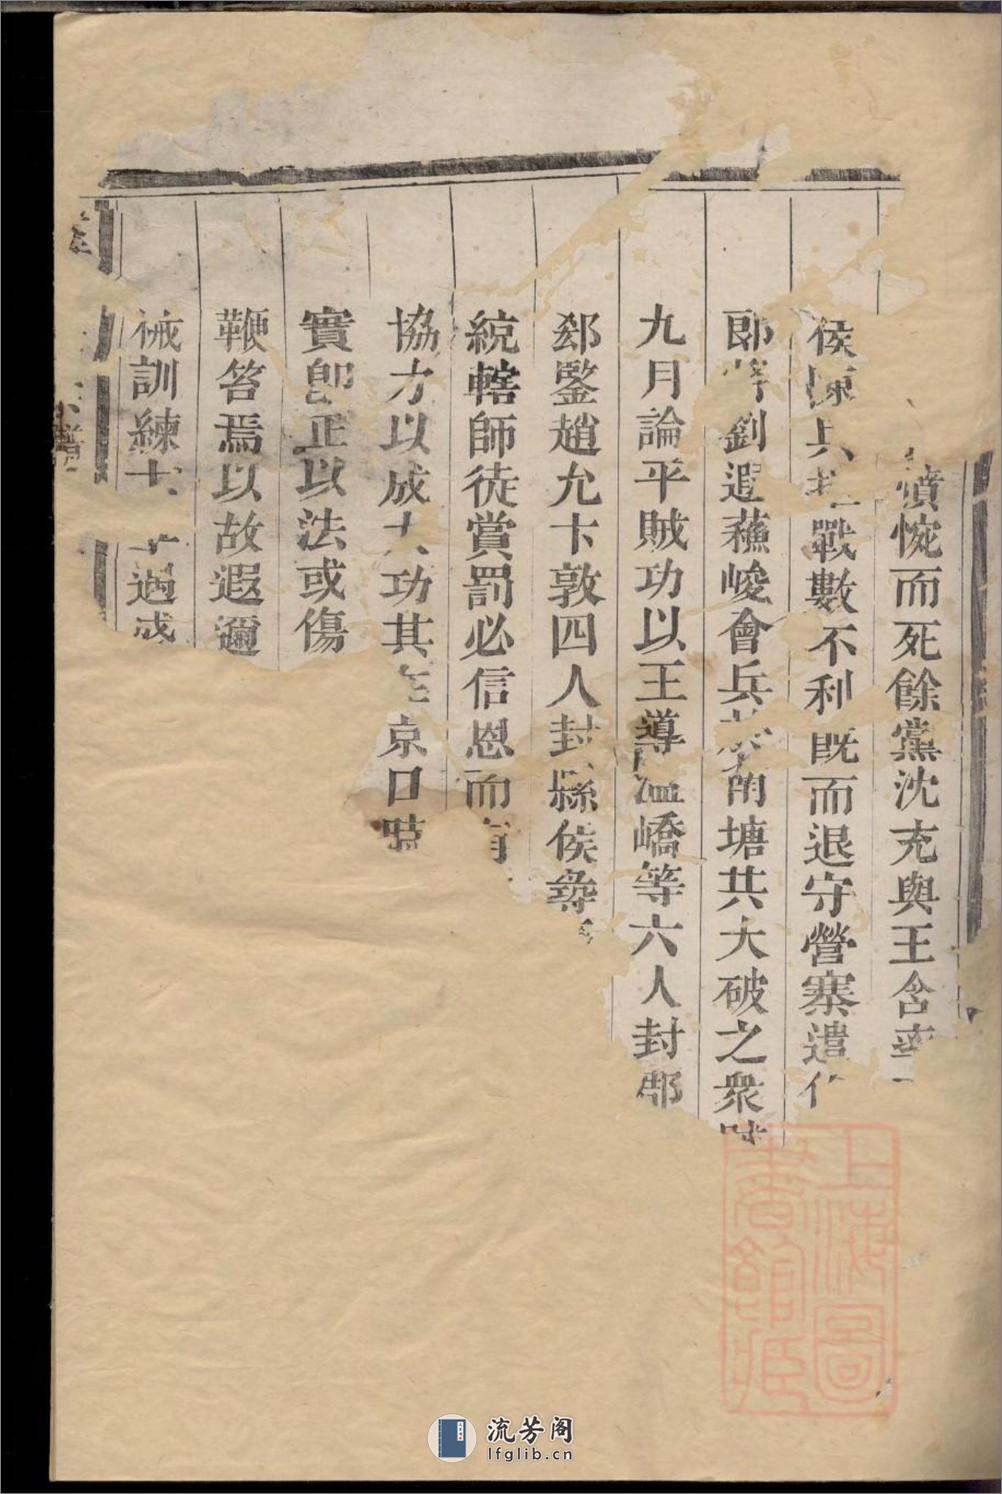 憤惋而死餘黨沈充與王含
侯陳兵戰數不利既而退守營寨遣
郎將劉遐蘇峻會兵南塘共大破之衆
九月論平賊功以王導溫嶠等六人封郡
郄鑒趙允卞敦四人封縣侯彛
統轄師徒賞罰必信恩而有
協力以成大功其在京口時
實卽正以法或傷
鞭笞焉以故遐邇
械訓練士過
譜
上海圖
書館藏
流芳阁
lfglib.cn